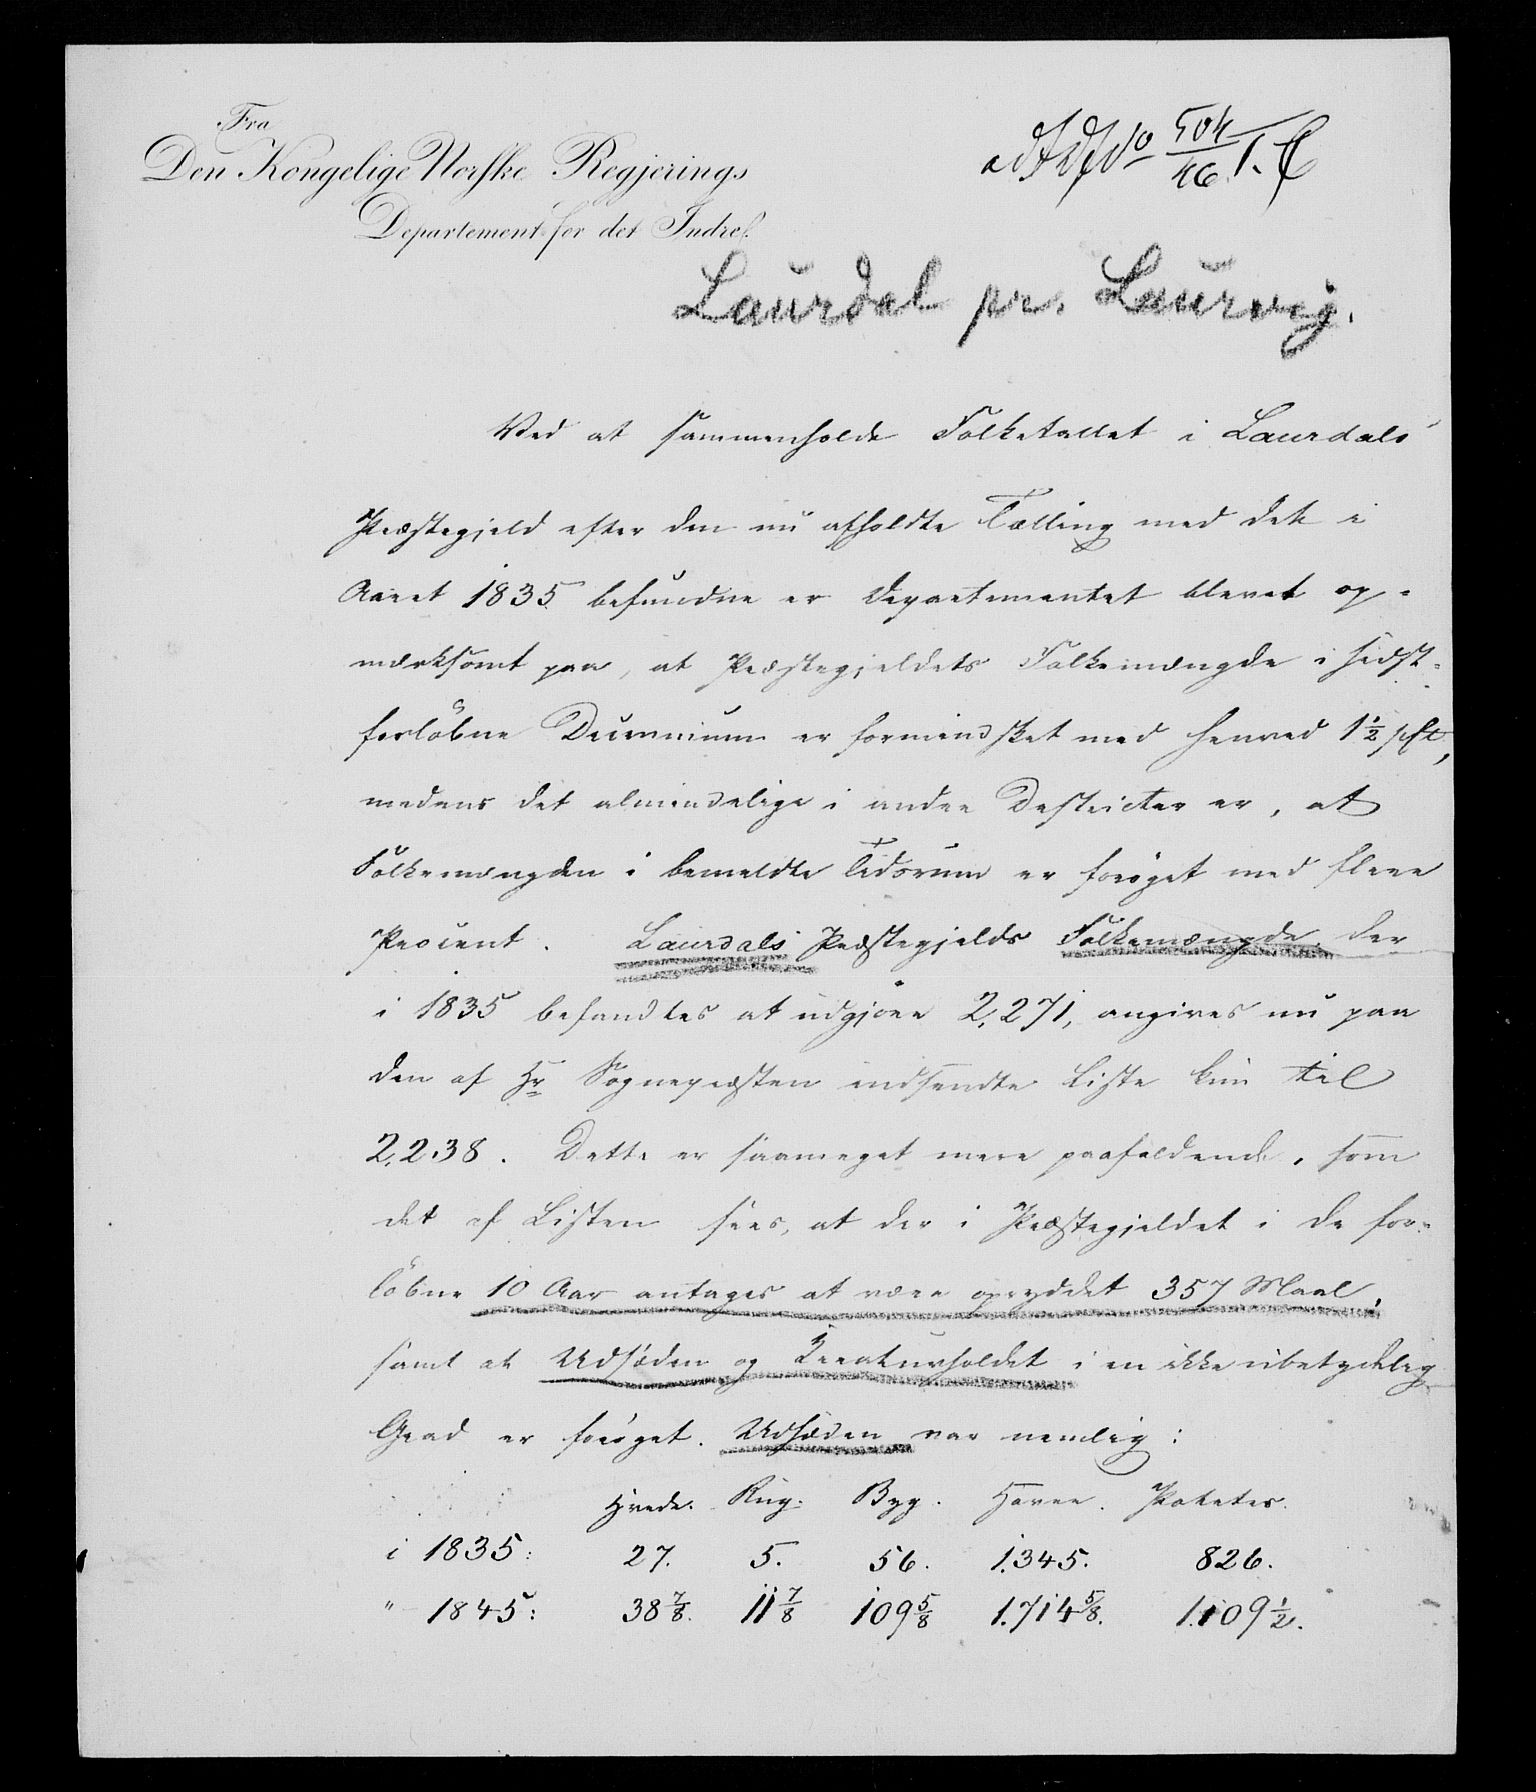 Fra
Den Kongelige Norske Regjerings
Departement for det Indre.
504
46
Laurdal pr. Laurvig.
Ved at sammenholde Folketallet i Laurdals
Præstegjeld efter den nu afholdte Tælling med det i
Aaret 1835 befundne er Departementet blevet op-
mærksomt paa, at Præstegjeldets Folkemængde i sidst-
forløbne Decennium er formindsket med henved 1½ pCt,
medens det almindelige i andre Districter er, at
Folkemængden i bemeldte Tidsrum er forøget med flere
Procent. Laurdals Præstegjelds Folkemængde, der
i 1835 befandtes at udgjøre 2,271, angives nu paa
den af Hr Sognepræsten indsendte Liste kun til
2,238. Dette er saameget mere paafaldende, som
det af Listen sees, at der i Præstegjeldet i de for-
løbne 10 Aar antages at være opryddet 357 Maal,
samt at Udsæden og Kreaturholdet i en ikke ubetydelig
Grad er forøget. Udsæden var nemlig:
Hvede. Rug. Byg. Havre. Poteter.
i 1835: 27. 5. 56. 1.345. 826.
" 1845: 38 7/8. 11 7/8 109 5/8 1.714 5/8. 1.109 ½.